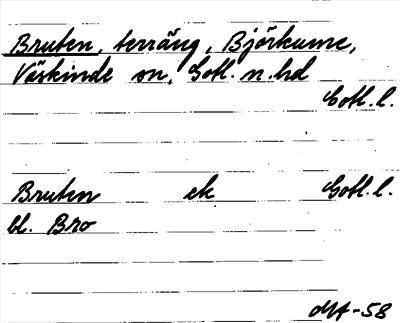 Bruten, terräng, Björkume,
Väskinde sn, Gotl. n. hd
Gotl. l.
Bruten ek Gotl. l.
bl. Bro
-58